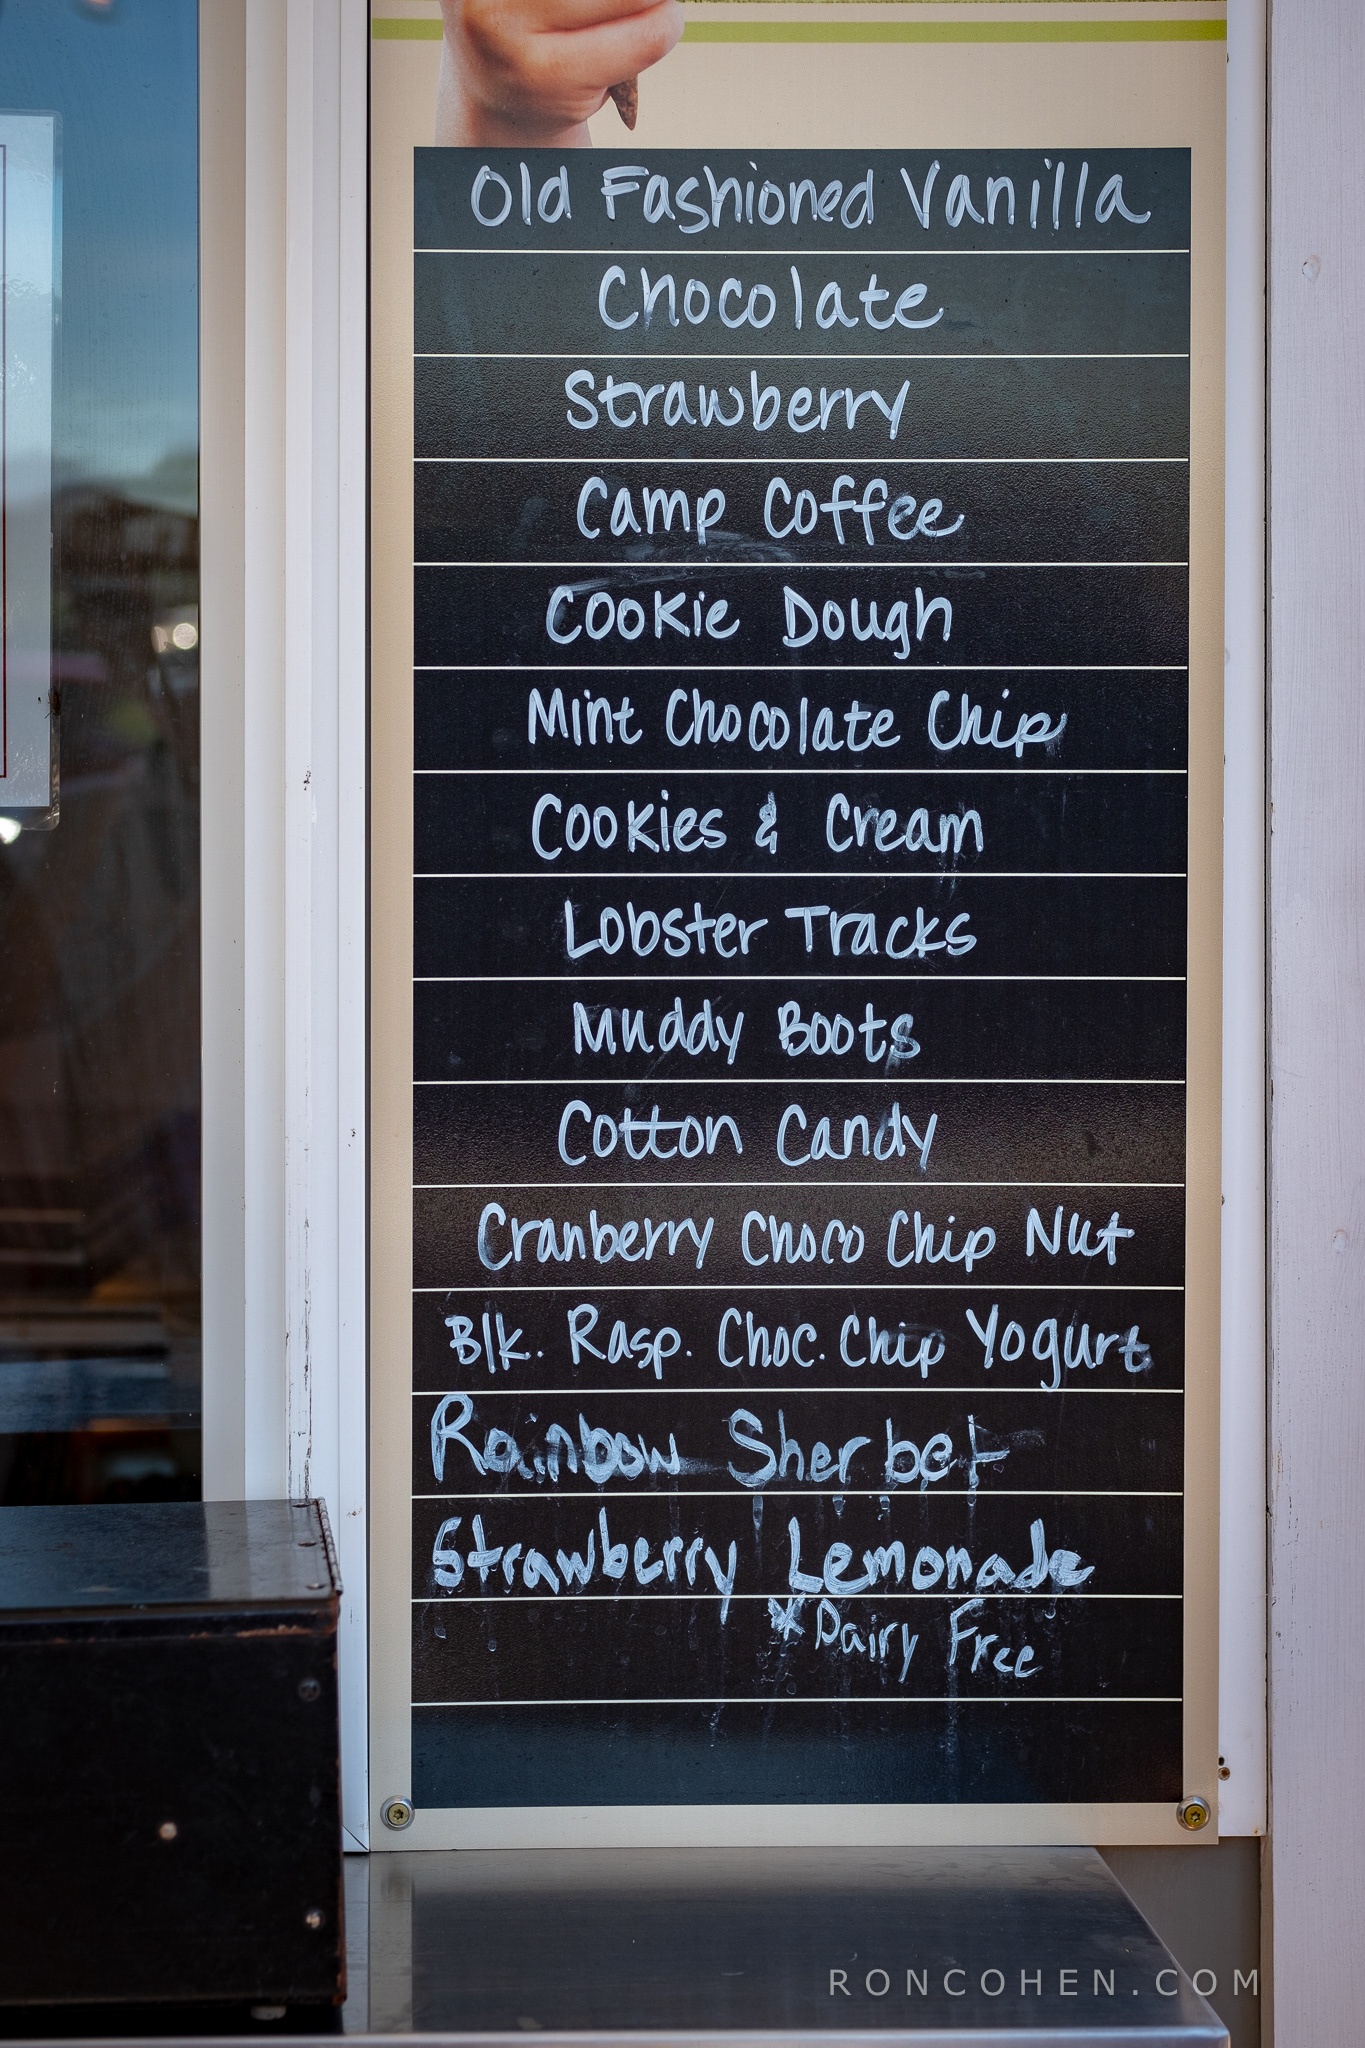 Old Fashioned Vanilla
Chocolate
Strawberry
Camp Coffee
Cookie Dough
Mint Chocolate Chip
Cookies & Cream
Lobster Tracks
Muddy Boots
Cotton Candy
Cranberry Choco Chip Nut
Blk. Rasp. Choc. Chip Yogurt
Rainbow Sherbet
Strawberry Lemonade
*Dairy Free
RONCOHEN.COM